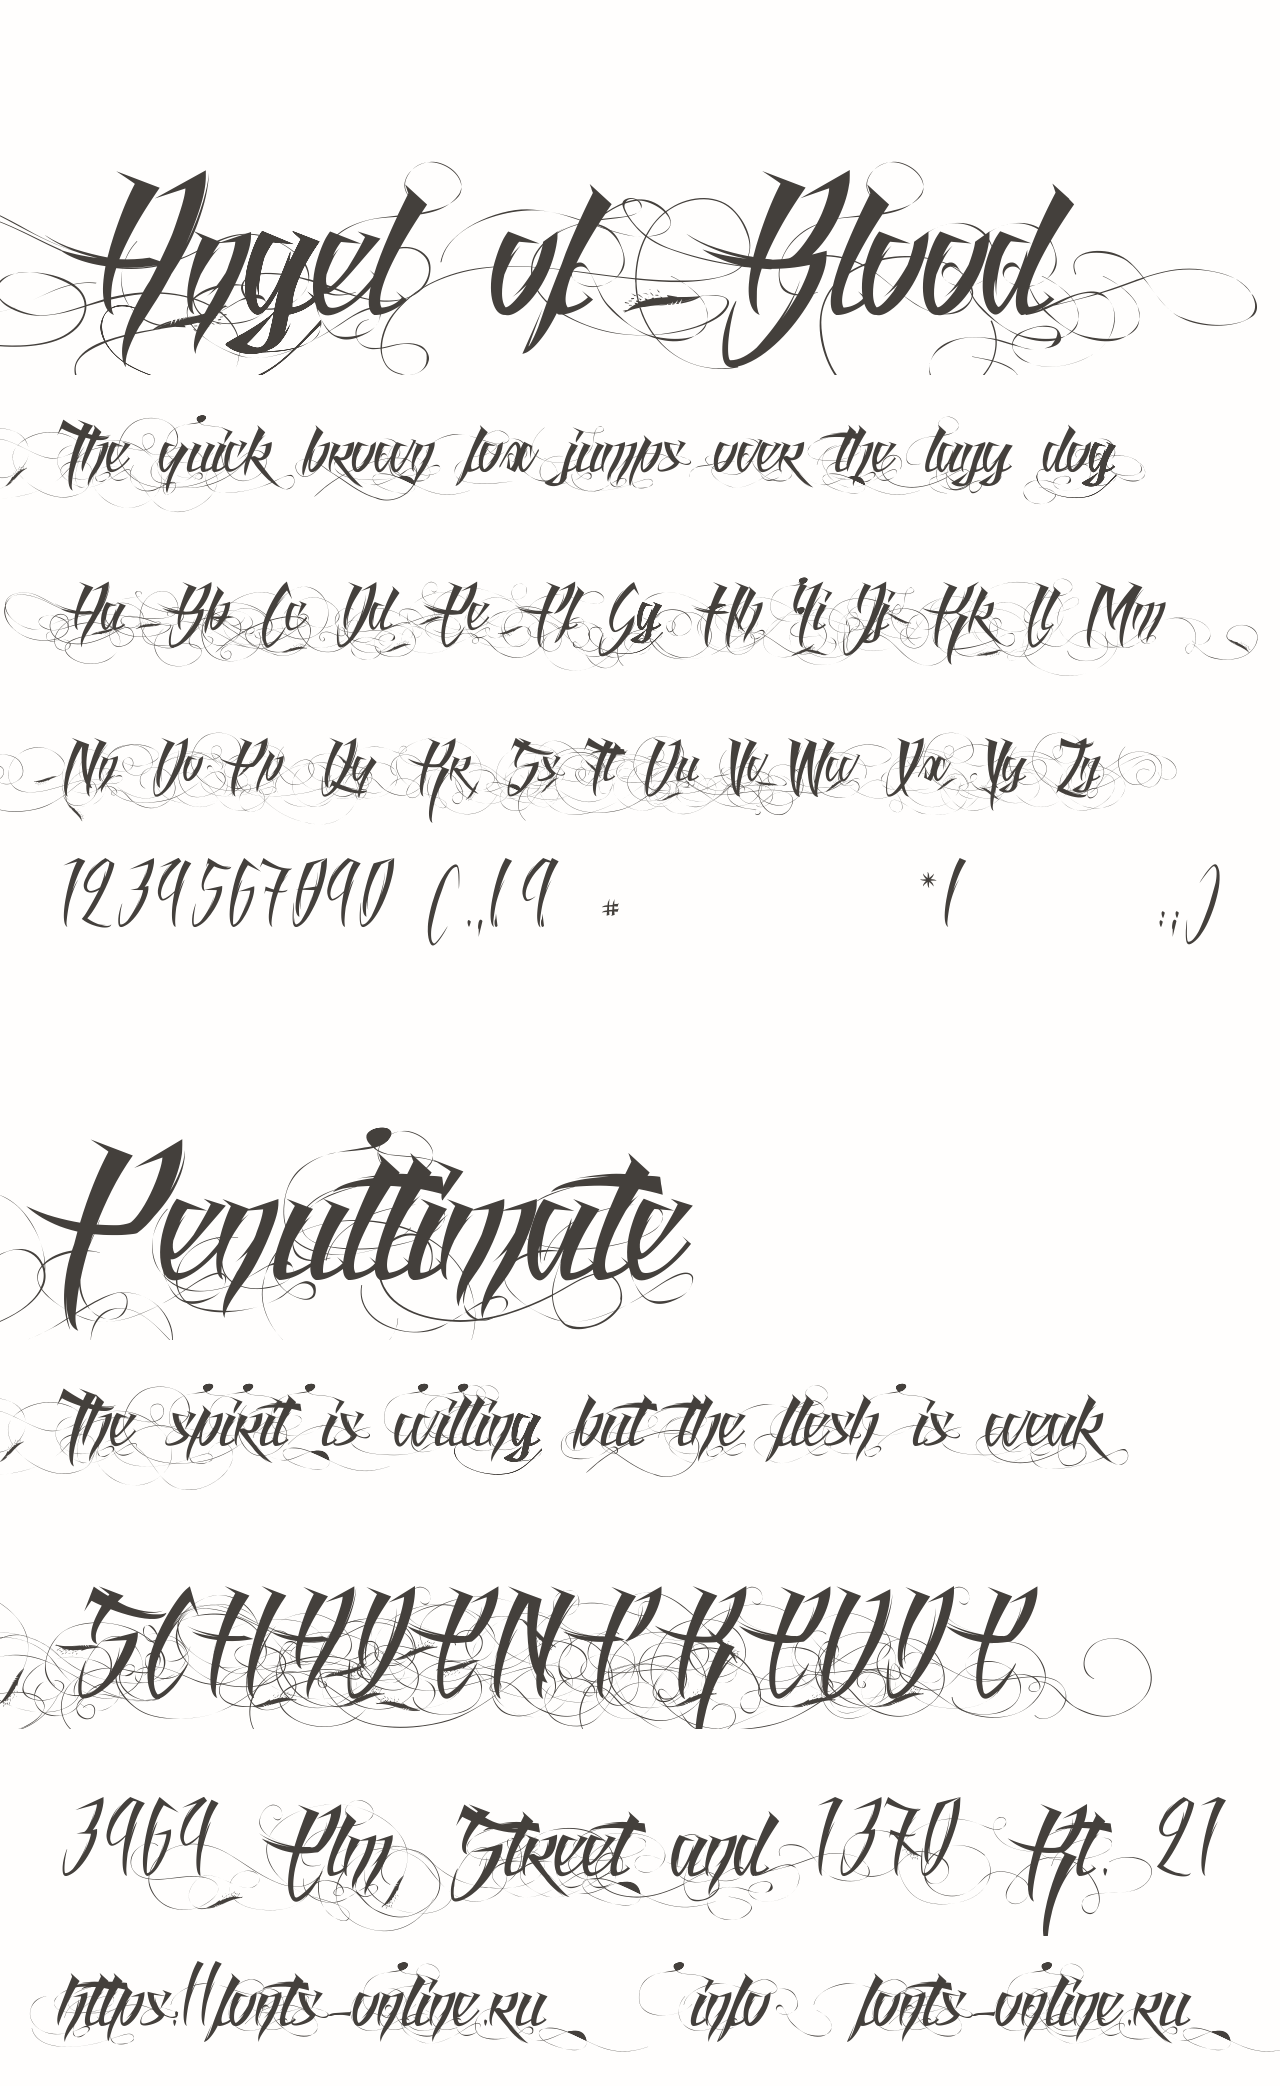 Angel of Blood
The quick brown fox jumps over the lazy dog
Aa Bb Cc Dd Ee Ff Gg Hh Ii Jj Kk Ll Mm
Nn Oo Pp Qq Rr Ss Tt Uu Vv Ww Xx Yy Zz
1234567890 (.,!? # */ :;)
Penultimate
The spirit is willing but the flesh is weak
SCHADENFREUDE
3964 Elm Street and 1370 Rt. 21
https://fonts-online.ru info fonts-online.ru